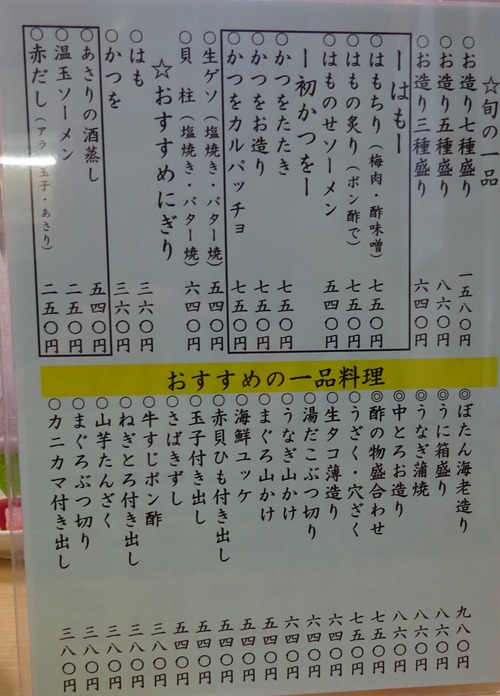 ☆旬の一品
○お造り七種盛り 一五八〇円
○お造り五種盛り 八六〇円
○お造り三種盛り 六四〇円
ーはもー
○はもちり（梅肉・酢味噌） 七五〇円
○はもの炙り（ポン酢で） 七五〇円
○はものせソーメン 五四〇円
ー初かつをー
○かつをたたき 七五〇円
○かつをお造り 七五〇円
○かつをカルパッチョ 七五〇円
○生ゲソ（塩焼き・バター焼） 五四〇円
○貝 柱（塩焼き・バター焼） 六四〇円
☆おすすめにぎり
○はも 三六〇円
○かつを 三六〇円
○あさりの酒蒸し 五四〇円
○温玉ソーメン 二五〇円
○赤だし（アラ・玉子・あさり） 二五〇円
おすすめの一品料理
◎ぼたん海老造り 九八〇円
◎うに箱盛り 八六〇円
◎うなぎ蒲焼 八六〇円
◎中とろお造り 八六〇円
◎酢の物盛合わせ 七五〇円
○うざく・穴ざく 七五〇円
○生タコ薄造り 六四〇円
○湯だこぶつ切り 六四〇円
○うなぎ山かけ 六四〇円
○まぐろ山かけ 五四〇円
○海鮮ユッケ 五四〇円
○赤貝ひも付き出し 五四〇円
○玉子付き出し 五四〇円
○さばきずし 五四〇円
○牛すじポン酢 三八〇円
○ねぎとろ付き出し 三八〇円
○山芋たんざく 三八〇円
○まぐろぶつ切り 三八〇円
○カニカマ付き出し 三八〇円